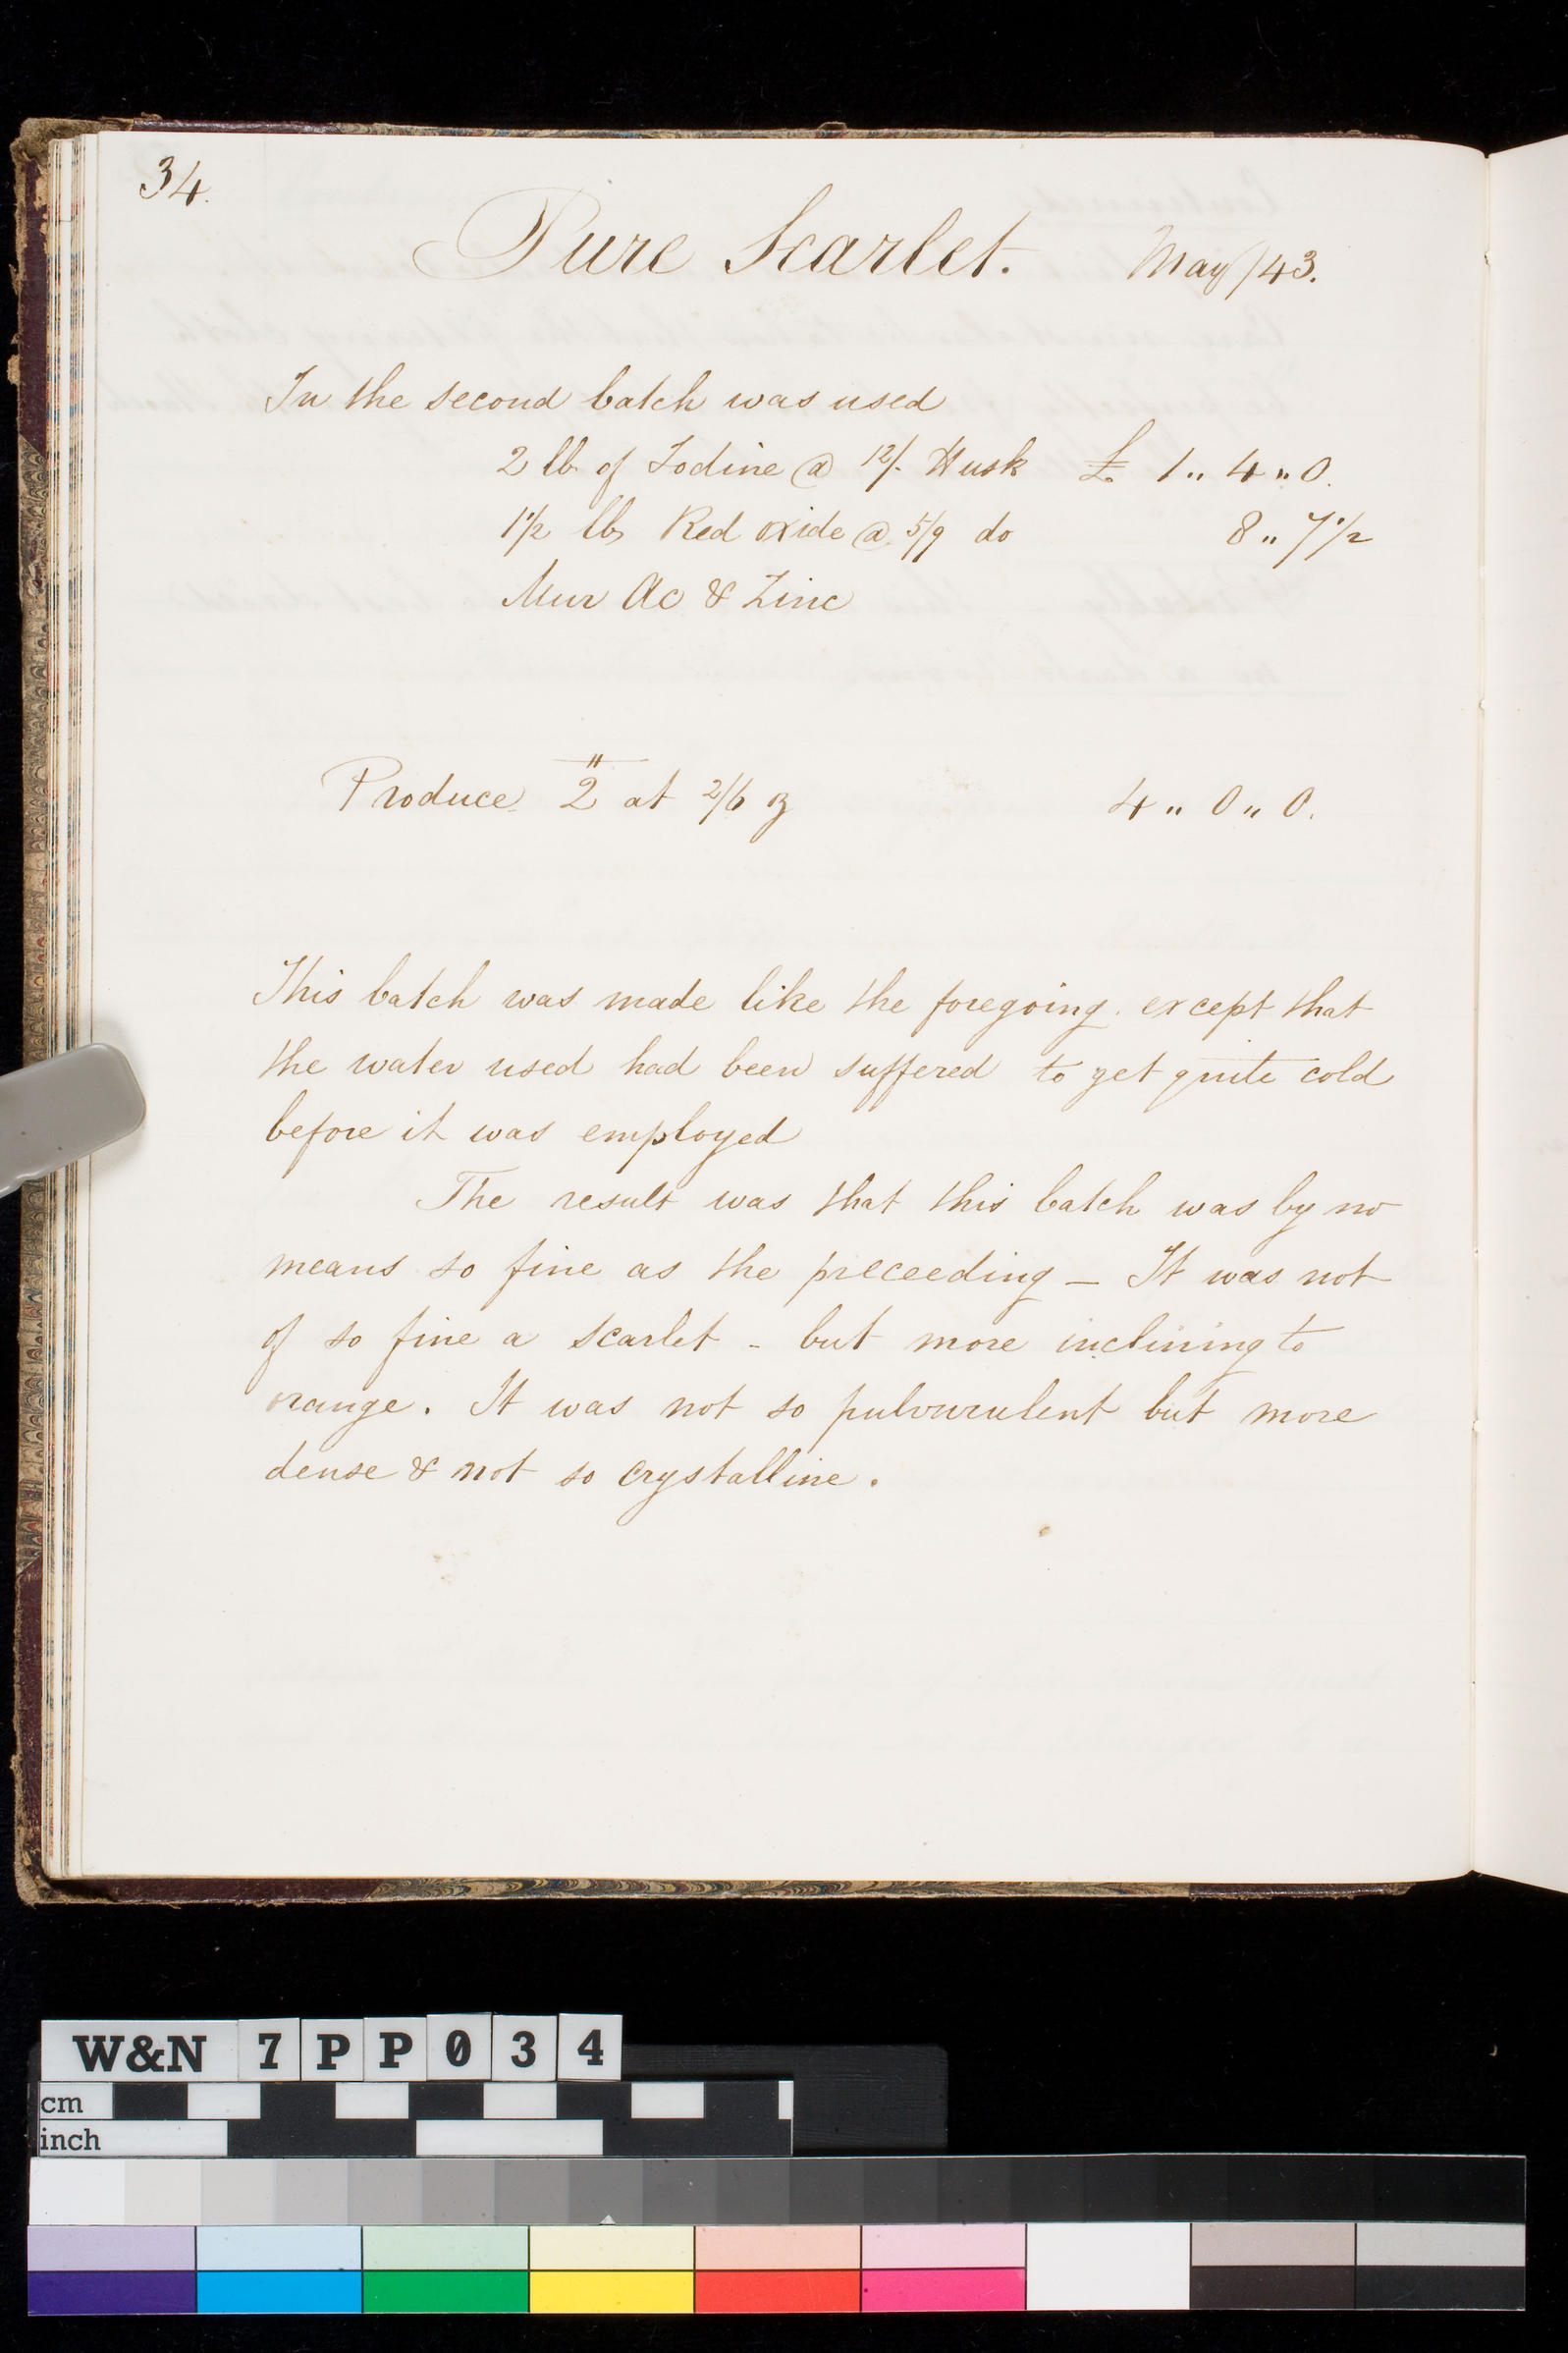 34.
Pure Scarlet. May/43.
In the second batch was used
2 lb of Iodine @ 12/- Husk £ 1 " 4 " 0.
1 1/2 lbs Red oxide @ 5/9 do 8 " 7 1/2
Mur Ac & Zinc
Produce 2 at 2/6 oz 4 " 0 " 0.
This batch was made like the foregoing. except that
the water used had been suffered to get quite cold
before it was employed
The result was that this batch was by no
means so fine as the preceeding - It was not
of so fine a scarlet - but more inclining to
orange. It was not so pulvurulent but more
dense & not so crystalline.
W&N 7 P P 0 3 4
cm
inch